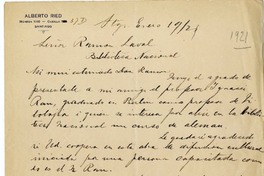 ALBERTO RIED
SANTIAGO
Stgo. Enero 19/21
1921
Señor Ramón Laval
Biblioteca Nacional
Mi muy estimado don Ramón
Tengo el agrado de
presentarle a mi amigo el prof. Ignacio
Ram, graduado en Berlin como profesor de Fi
lologia i quien se interesa por abrir en la Biblio
teca Nacional un curso de aleman.
Le quedaré agradecido
si Ud. coopera en esta obra de difusion cultural
iniciada por una persona capacitada como
es el Sr Ram.